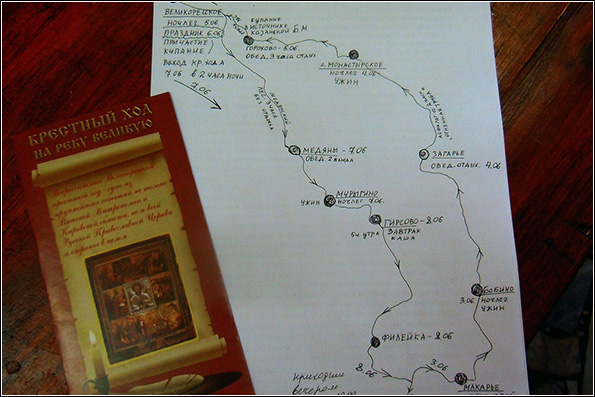 КРЕСТНЫЙ ХОД
НА РЕКУ ВЕЛИКУЮ
Кировской области, но и всей
Русской Православной Церкви
и страны в целом
ВЕЛИКОРЕЦКОЕ
НОЧЛЕГ 5.06
ПРАЗДНИК 6.06
ПРИЧАСТИЕ
КУПАНИЕ
ВЫХОД КР. ХОДА
7.06 В 2 ЧАСА НОЧИ
7.06
КУПАНИЕ
В ИСТОЧНИКЕ
КАЗАНСКОЙ Б.М
ГОРОХОВО - 5.06
ОБЕД, 3 ЧАСА ОТДЫХ
с. МОНАСТЫРСКОЕ
НОЧЛЕГ 4.06
УЖИН
МЕДЯНЫ - 7.06
ОБЕД. 2 КАНАЛ
ЗАГАРЬЕ
ОБЕД. ОТДЫХ. 4.06
МУРЫГИНО
УЖИН НОЧЛЕГ 7.06
ГИРСОВО - 8.06
5ч УТРА ЗАВТРАК
КАША
БОБИНО
3.06 НОЧЛЕГ
УЖИН
ФИЛЕЙКА - 8.06
8.06
3.06
МАКАРЬЕ
ПРИХОДИМ
ВЕЧЕРОМ